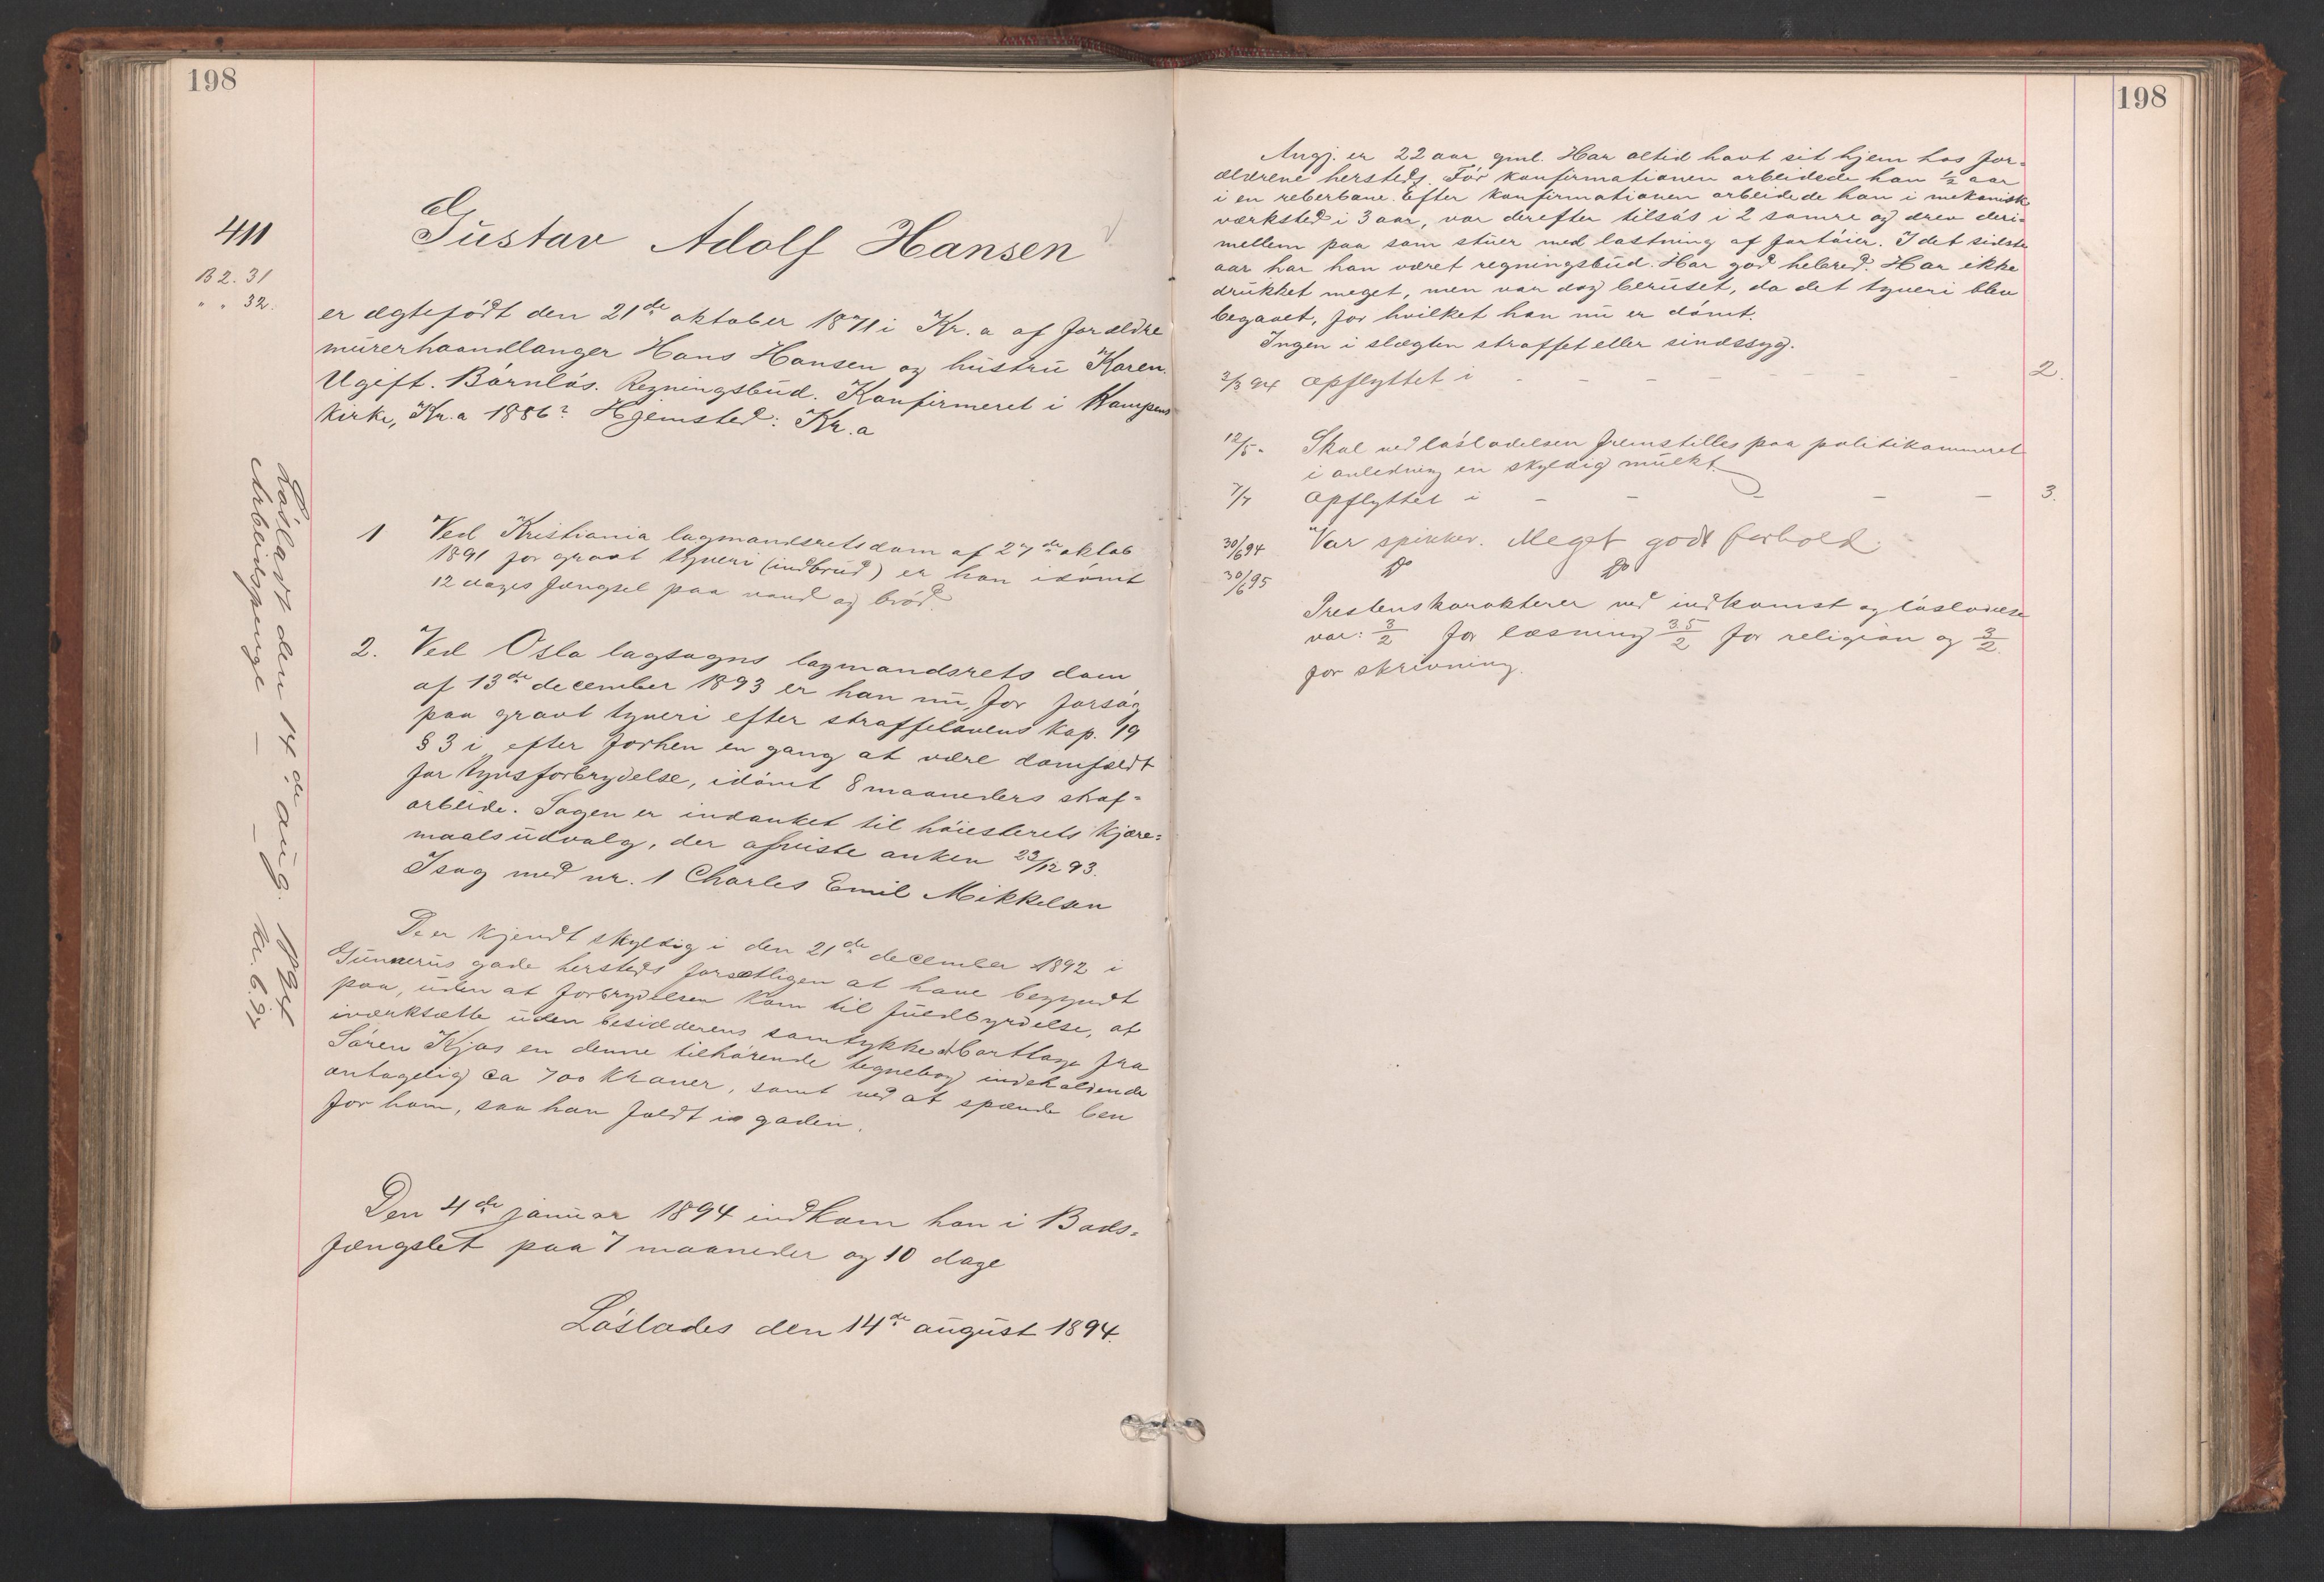 198
411
B 2. 31
" " 32.
Gustav Adolf Hansen
er ægtefødt den 21de oktober 1871 i Kr.a af forældre
murerhaandlanger Hans Hansen og hustru Karen.
Ugift. Barnløs. Regningsbud. Konfirmeret i Kampens
kirke, Kr.a 1886? Hjemsted: Kr.a
Løsladt den 14de aug. 1894
Arbeidspenge — — kr. 6.92
1 Ved Kristiania lagmandsrets dom af 27de oktob
1891 for grovt tyveri (indbrud) er han idømt
12 dages fængsel paa vand og brød.
2. Ved Oslo lagsogns lagmandsrets dom
af 13de december 1893 er han nu, for forsøg
paa grovt tyveri efter straffelovens Kap. 19
§ 3 i, efter forhen en gang at være domfældt
for tyvsforbrydelse, idømt 8 maaneders straf=
arbeide. Sagen er indanket til høiesterets kjære=
maalsudvalg, der afviste anken 23/12 93.
I sag med nr. 1 Charles Emil Mikkelsen
De er kjendt skyldig i den 21de december 1892 i
Gunnerus gade hersteds forsætligen at have begyndt
paa, uden at forbrydelsen kom til fuldbyrdelse, at
iværksætte uden besidderens samtykke at borttage fra
Søren Kjos en denne tilhørende tegnebog indeholdende
antagelig ca 700 kroner, samt ved at spænde ben
for ham, saa han faldt i gaden.
Den 4de januar 1894 indkom han i Bods=
fængslet paa 7 maaneder og 10 dage
Løslades den 14de august 1894.
198
Angj. er 22 aar gml. Har altid havt sit hjem hos for=
ældrene hersteds. Før konfirmationen arbeidede han 1/2 aar
i en reberbane. Efter konfirmationen arbeidede han i mekanisk
værksted i 3 aar, var derefter tilsøs i 2 somre og drev deri=
mellem paa som stuer med lastning af fartøier. I det sidste
aar har han været regningsbud. Har god helbred. Har ikke
drukket meget, men var dog beruset, da det tyveri blev
begaaet, for hvilket han nu er dømt.
Ingen i slægten straffet eller sindssyg.
2/3 94 Opflyttet i - - - - - - 2.
12/5 - Skal ved løsladelsen fremstilles paa politikammeret
i anledning en skyldig mulkt.
7/7 Opflyttet i - - - - - 3.
30/6 94 Var spikker. Meget godt forhold.
30/6 95 Do Do
Prestens karakterer ved indkomst og løsladelse
var: 3/2 for læsning 3.5/2 for religion og 3/2
for skrivning.